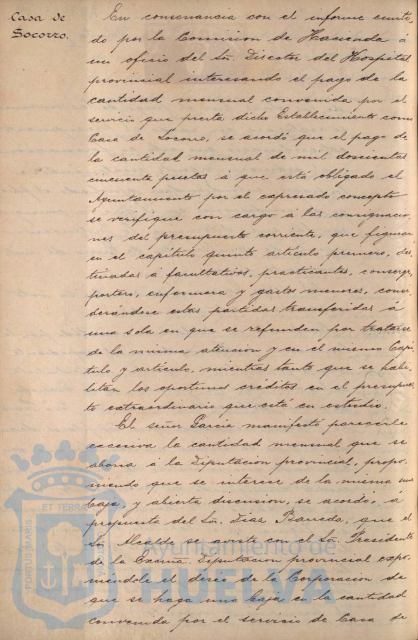 Casa de
Socorro.
En consonancia con el informe emiti-
do por la Comision de Hacienda á
un oficio del Sr. Director del Hospital
provincial interesando el pago de la
cantidad mensual convenida por el
servicio que presta dicho Establecimiento como
Casa de Socorro, se acordó que el pago de
la cantidad mensual de mil doscientas
cincuenta pesetas á que está obligado el
Ayuntamiento por el expresado concepto
se verifique con cargo á las consignacio-
nes del presupuesto corriente, que figuran
en el capítulo quinto artículo primero, des-
tinadas á facultativos, practicantes, conserje,
portero, enfermera y gastos menores, consi-
derándose estas partidas transferidas á
una sola en que se refunden por tratarse
de la misma atencion y en el mismo Capí-
tulo y artículo, mientras tanto que se habi-
litan los oportunos créditos en el presupues-
to extraordinario que está en estudio.
El señor García manifestó parecerle
excesiva la cantidad mensual que se
abona á la Diputacion provincial, propo-
niendo que se interese de la misma una
baja, y abierta discusion, se acordó, á
propuesta del Sr. Diaz Barredo, que el
Sr. Alcalde se aviste con el Sr. Presidente
de la Excma. Diputacion provincial expo-
niéndole el deseo de la Corporacion de
que se haga una baja en la cantidad
convenida por el servicio de Casa de
PORTUS MARIS
ET TERRAE
Ayuntamiento de
HUELVA